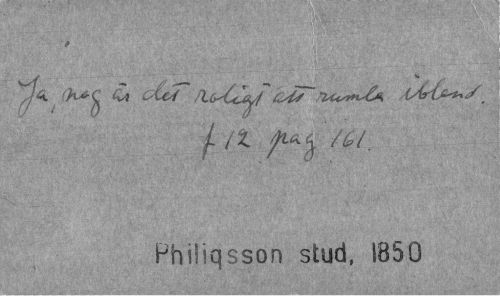 Ja, nog är det roligt att rumla ibland.
f 12 pag 161.
Philiqsson stud, 1850